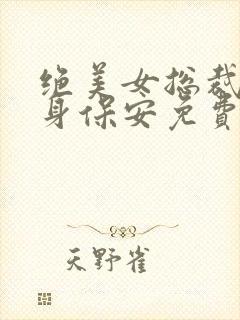 绝美女总裁
身保安免费
天野雀